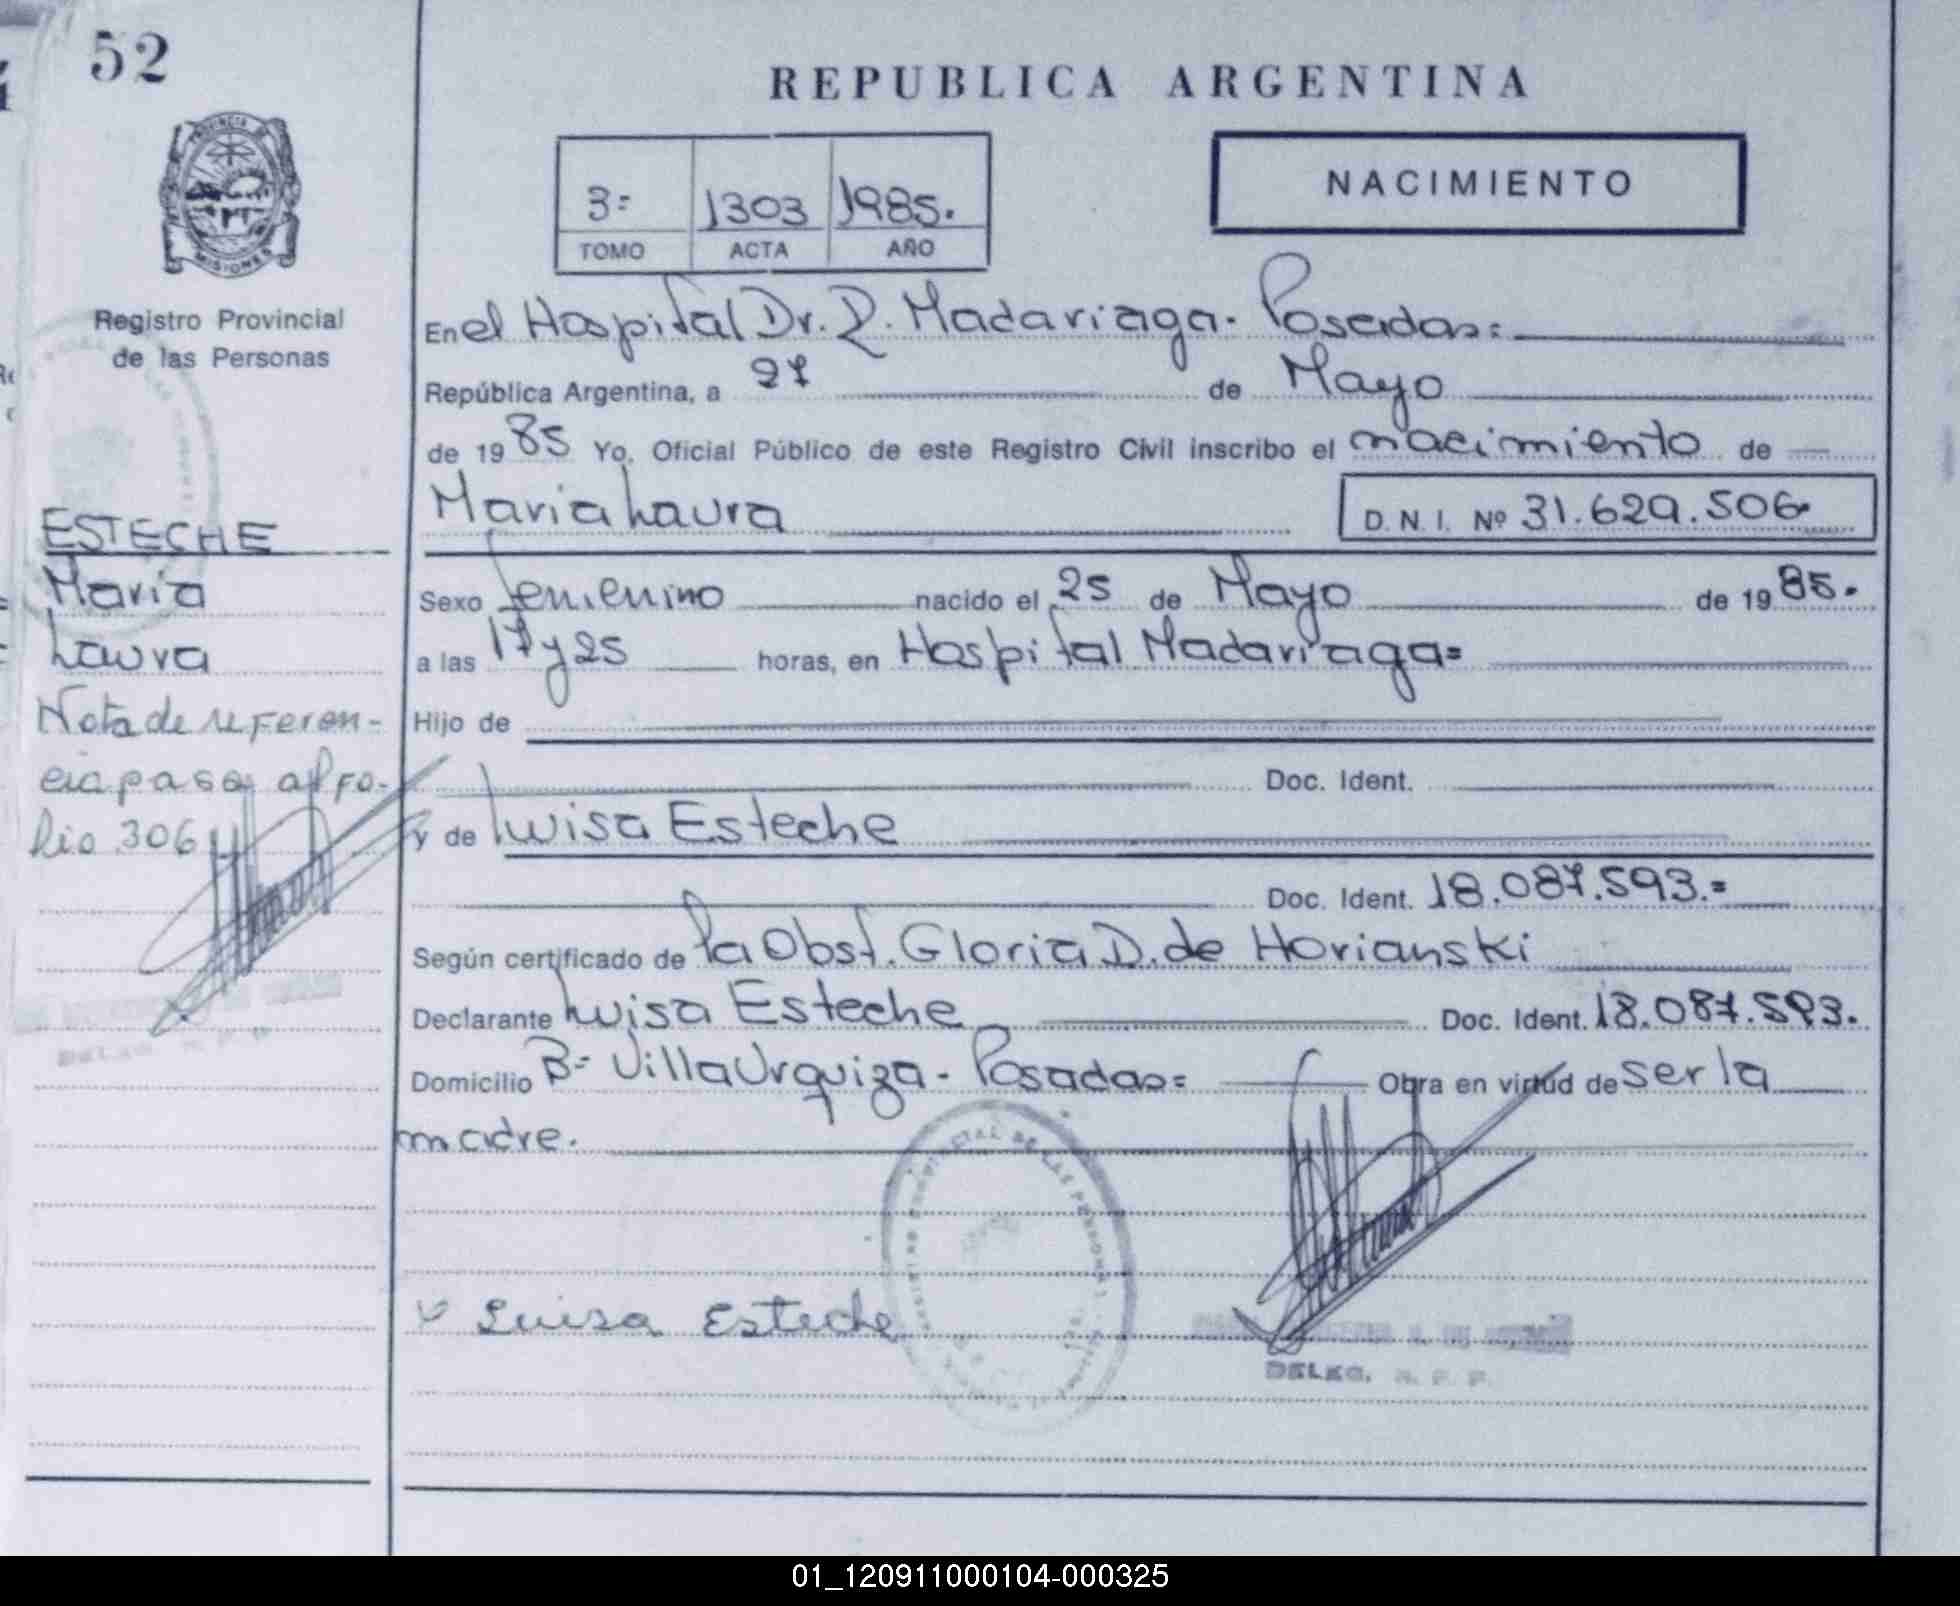 52
REPUBLICA ARGENTINA
PROVINCIA DE
MISIONES
3= 1303 1985.
TOMO ACTA AÑO
NACIMIENTO
Registro Provincial
de las Personas
ESTECHE
Maria
Laura
Nota de referen-
cia pasa al fo-
lio 306
En el Hospital Dr. R. Madariaga - Posadas=
República Argentina, a 27 de Mayo
de 1985 Yo, Oficial Público de este Registro Civil inscribo el nacimiento de
Maria Laura D.N.I. Nº 31.629.506.
Sexo femenino nacido el 25 de Mayo de 1985.
a las 17 y 25 horas, en Hospital Madariaga=
Hijo de
Doc. Ident.
y de Luisa Esteche
Doc. Ident. 18.087.593.=
Según certificado de la Obst. Gloria D. de Horianski
Declarante Luisa Esteche Doc. Ident. 18.087.593.
Domicilio B= Villa Urquiza - Posadas= Obra en virtud de ser la
madre.
Luisa Esteche
DELEG. R. P. P.
01_120911000104-000325